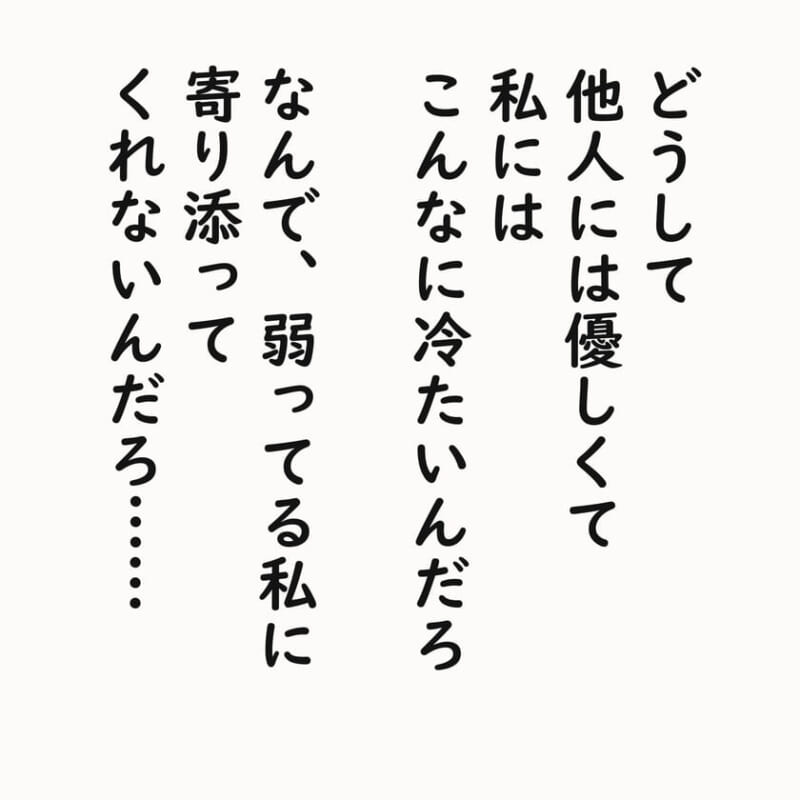 どうして
他人には優しくて
私には
こんなに冷たいんだろ
なんで、弱ってる私に
寄り添って
くれないんだろ……